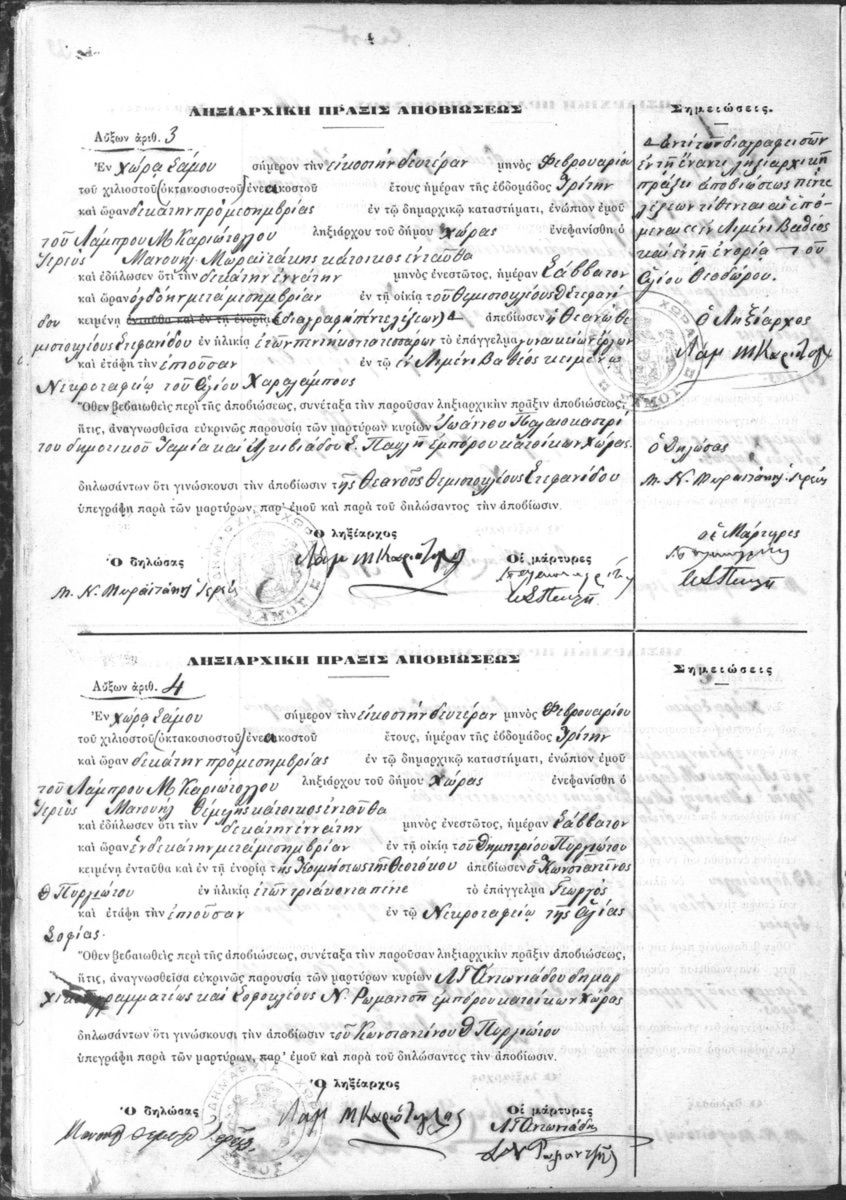 4
ΛΗΞΙΑΡΧΙΚΗ ΠΡΑΞΙΣ ΑΠΟΒΙΩΣΕΩΣ
Αὔξων ἀριθ. 3
Ἐν Χώρᾳ Σάμου σήμερον τὴν εἰκοστὴν δευτέραν μηνὸς Φεβρουαρίου
τοῦ χιλιοστοῦ (ὀκτακοσιοστοῦ) ἐνεακοστοῦ ἔτους ἡμέραν τῆς ἑβδομάδος Τρίτην
καὶ ὥραν δεκάτην πρὸ μεσημβρίας ἐν τῷ δημαρχικῷ καταστήματι, ἐνώπιον ἐμοῦ
τοῦ Λάμπρου Μ Καριώτογλου ληξιάρχου τοῦ δήμου Χώρας ἐνεφανίσθη ὁ
Ἱερεὺς Μανουὴλ Μωραϊτάκης κάτοικος ἐνταῦθα
καὶ ἐδήλωσεν ὅτι τὴν δεκάτην ἐννάτην μηνὸς ἐνεστῶτος, ἡμέραν Σάββατον
καὶ ὥραν ὀγδόην μετὰ μεσημβρίαν ἐν τῇ οἰκίᾳ τοῦ Θεμιστοκλέους Στεφανί
δου κειμένῃ ἐνταῦθα καὶ ἐν τῇ ἐνορίᾳ (διαγραφὴ πέντε λέξεων) ἀπεβίωσεν ἡ Θεανὼ Θε
μιστοκλέους Στεφανίδου ἐν ἡλικίᾳ ἐτῶν πενήκοντα τεσσάρων τὸ ἐπάγγελμα γυναικείων ἔργων
καὶ ἐτάφη τὴν ἐπιοῦσαν ἐν τῷ ἐν Λιμένι Βαθέος κειμένῳ
Νεκροταφείῳ τοῦ Ἁγίου Χαραλάμπους
Ὅθεν βεβαιωθεὶς περὶ τῆς ἀποβιώσεως, συνέταξα τὴν παροῦσαν ληξιαρχικὴν πρᾶξιν ἀποβιώσεως,
ἥτις, ἀναγνωσθεῖσα εὐκρινῶς παρουσίᾳ τῶν μαρτύρων κυρίων Ἰωάννου Παλαιοκάστρί
του δημοτικοῦ Ταμία καὶ Ἀλκιβιάδου Σ. Παυλῆ ἐμπόρου κατοίκων Χώρας.
δηλωσάντων ὅτι γινώσκουσι τὴν ἀποβίωσιν τῆς Θεανοῦς Θεμιστοκλέους Στεφανίδου
ὑπεγράφη παρὰ τῶν μαρτύρων, παρ' ἐμοῦ καὶ παρὰ τοῦ δηλώσαντος τὴν ἀποβίωσιν.
Ὁ ληξίαρχος
Ὁ δηλώσας Λαμ Μ Καριώτογλ Οἱ μάρτυρες
Μ. Ν. Μωραϊτάκης Ἱερεύς
Σημειώσεις.
Ἀντὶ τῶν διαγραφεισῶν
ἐν τῇ ἔναντι ληξιαρχικῇ
πράξει ἀποβιώσεως πέντε
λέξεων τίθενται αἱ ἑπό
μεναι «ἐν Λιμένι Βαθέος
καὶ ἐν τῇ ἐνορίᾳ τοῦ
Ἁγίου Θεοδώρου.
Ὁ Ληξίαρχος
Λαμ Μ Καριώτογλ
Ὁ δηλώσας
Μ. Ν. Μωραϊτάκης Ἱερεύς
Οἱ Μάρτυρες
ΛΗΞΙΑΡΧΙΚΗ ΠΡΑΞΙΣ ΑΠΟΒΙΩΣΕΩΣ
Αὔξων ἀριθ. 4
Ἐν Χώρᾳ Σάμου σήμερον τὴν εἰκοστὴν δευτέραν μηνὸς Φεβρουαρίου
τοῦ χιλιοστοῦ (ὀκτακοσιοστοῦ) ἐνεακοστοῦ ἔτους, ἡμέραν τῆς ἑβδομάδος Τρίτην
καὶ ὥραν δεκάτην πρὸ μεσημβρίας ἐν τῷ δημαρχικῷ καταστήματι, ἐνώπιον ἐμοῦ
τοῦ Λάμπρου Μ Καριώτογλου ληξιάρχου τοῦ δήμου Χώρας ἐνεφανίσθη ὁ
Ἱερεὺς Μανουὴλ Θέμελης κάτοικος ἐνταῦθα
καὶ ἐδήλωσεν ὅτι τὴν δεκάτην ἐννάτην μηνὸς ἐνεστῶτος, ἡμέραν Σάββατον
καὶ ὥραν ἑνδεκάτην μετὰ μεσημβρίαν ἐν τῇ οἰκίᾳ τοῦ Δημητρίου Πυργιώτου
κειμένῃ ἐνταῦθα καὶ ἐν τῇ ἐνορίᾳ τῆς Κοιμήσεως τῆς Θεοτόκου ἀπεβίωσεν ὁ Κωνσταντῖνος
Δ Πυργιώτου ἐν ἡλικίᾳ ἐτῶν τριάκοντα πέντε τὸ ἐπάγγελμα Γεωργός
καὶ ἐτάφη τὴν ἐπιοῦσαν ἐν τῷ Νεκροταφείῳ τῆς Ἁγίας
Σοφίας.
Ὅθεν βεβαιωθεὶς περὶ τῆς ἀποβιώσεως, συνέταξα τὴν παροῦσαν ληξιαρχικὴν πρᾶξιν ἀποβιώσεως,
ἥτις, ἀναγνωσθεῖσα εὐκρινῶς παρουσίᾳ τῶν μαρτύρων κυρίων Λ Γ Ἀντωνιάδου δημαρ
χικοῦ γραμματέως καὶ Σοφοκλέους Ν. Ρωμαντζῆ ἐμπόρου κατοίκων Χώρας
δηλωσάντων ὅτι γινώσκουσι τὴν ἀποβίωσιν τοῦ Κωνσταντίνου Δ Πυργιώτου
ὑπεγράφη παρὰ τῶν μαρτύρων, παρ' ἐμοῦ καὶ παρὰ τοῦ δηλώσαντος τὴν ἀποβίωσιν.
Ὁ ληξίαρχος
Ὁ δηλώσας Λαμ Μ Καριώτογλος Οἱ μάρτυρες
Λ Γ Ἀντωνιάδης
Σ Ν Ρωμαντζῆς
Σημειώσεις